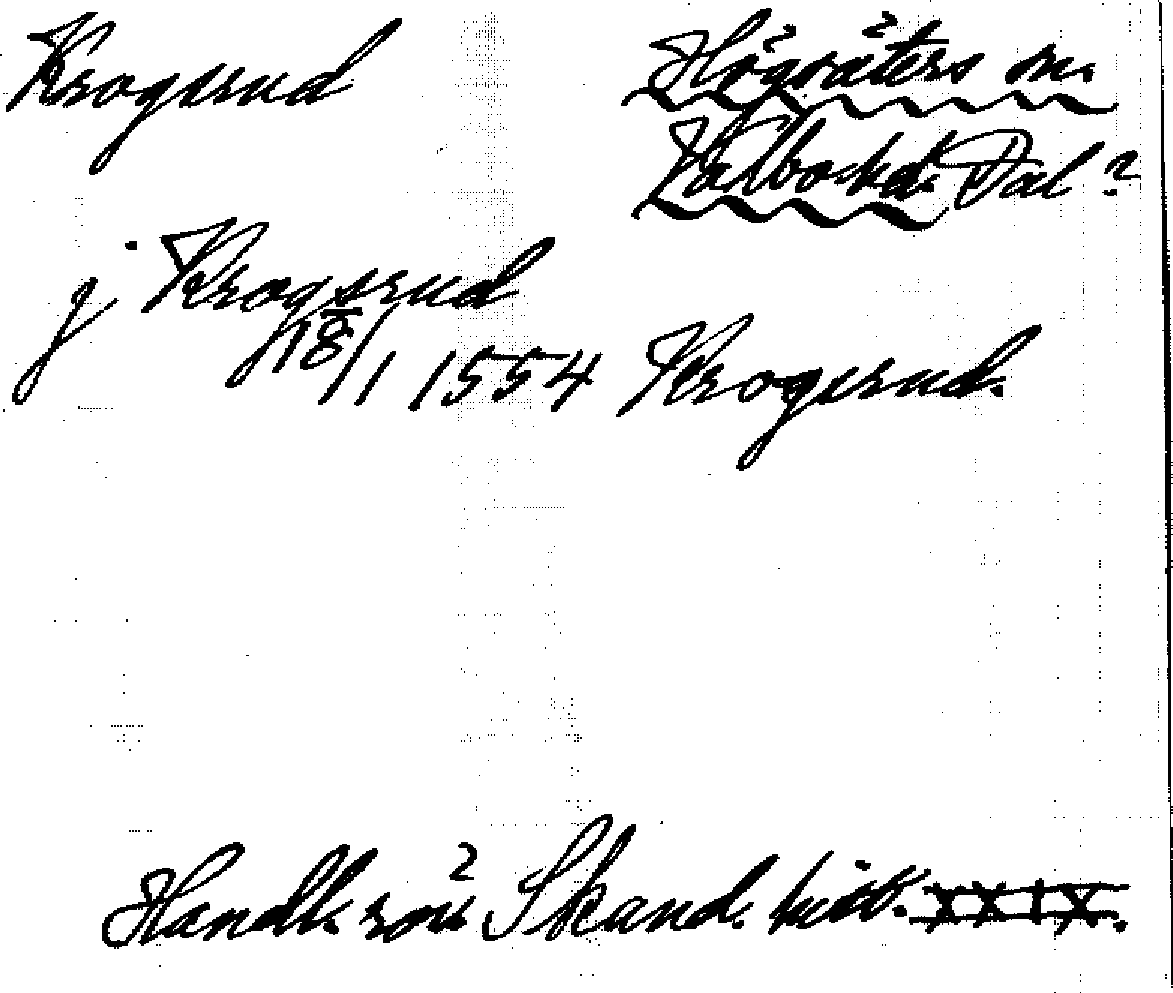 Krogsrud Högsäters sn.
Valbo hd. Dal?
j Krogsrud
18/1 1554 Krogsrud.
Handl. rör. Skand. hist. XXIX.